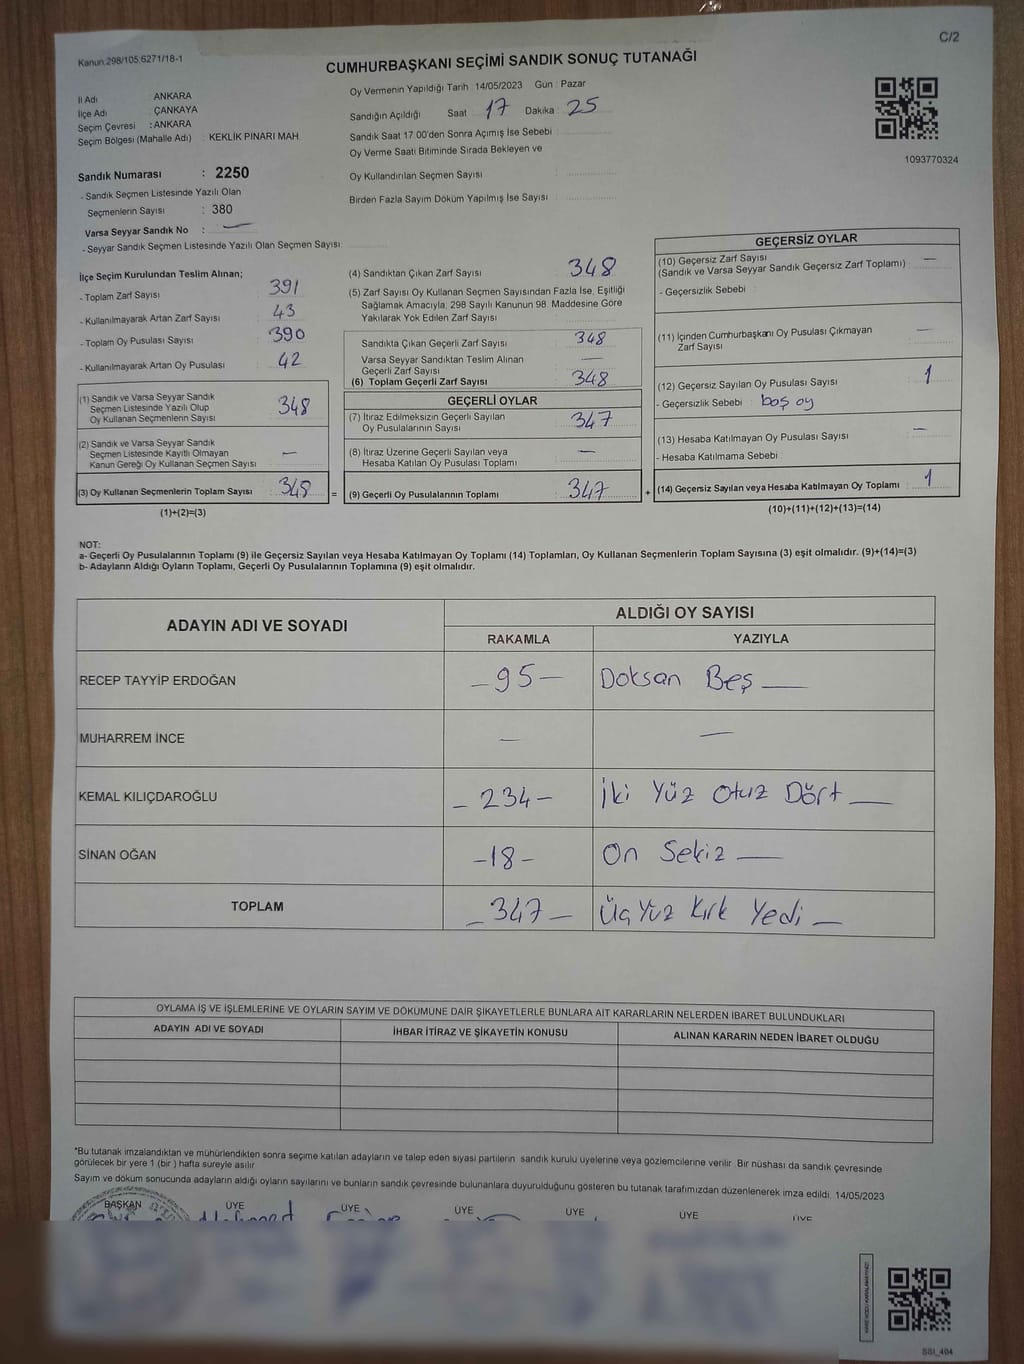 C/2
Kanun:298/105;6271/18-1
CUMHURBAŞKANI SEÇİMİ SANDIK SONUÇ TUTANAĞI
İl Adı ANKARA
İlçe Adı ÇANKAYA
Seçim Çevresi : ANKARA
Seçim Bölgesi (Mahalle Adı) : KEKLİK PINARI MAH
Oy Vermenin Yapıldığı Tarih : 14/05/2023 Gün : Pazar
Sandığın Açıldığı Saat 17 Dakika : 25
Sandık Saat 17:00'den Sonra Açımış İse Sebebi :
Oy Verme Saati Bitiminde Sırada Bekleyen ve
Oy Kullandırılan Seçmen Sayısı :
Birden Fazla Sayım Döküm Yapılmış İse Sayısı :
1093770324
Sandık Numarası : 2250
- Sandık Seçmen Listesinde Yazılı Olan
Seçmenlerin Sayısı : 380
Varsa Seyyar Sandık No : —
- Seyyar Sandık Seçmen Listesinde Yazılı Olan Seçmen Sayısı:
İlçe Seçim Kurulundan Teslim Alınan;
- Toplam Zarf Sayısı 391
- Kullanılmayarak Artan Zarf Sayısı : 43
- Toplam Oy Pusulası Sayısı : 390
- Kullanılmayarak Artan Oy Pusulası : 42
(1) Sandık ve Varsa Seyyar Sandık
Seçmen Listesinde Yazılı Olup
Oy Kullanan Seçmenlerin Sayısı : 348
(2) Sandık ve Varsa Seyyar Sandık
Seçmen Listesinde Kayıtlı Olmayan
Kanun Gereği Oy Kullanan Seçmen Sayısı : —
(3) Oy Kullanan Seçmenlerin Toplam Sayısı : 348 =
(1)+(2)=(3)
(4) Sandıktan Çıkan Zarf Sayısı : 348
(5) Zarf Sayısı Oy Kullanan Seçmen Sayısından Fazla İse, Eşitliği
Sağlamak Amacıyla, 298 Sayılı Kanunun 98. Maddesine Göre
Yakılarak Yok Edilen Zarf Sayısı :
Sandıkta Çıkan Geçerli Zarf Sayısı : 348
Varsa Seyyar Sandıktan Teslim Alınan
Geçerli Zarf Sayısı : —
(6) Toplam Geçerli Zarf Sayısı : 348
GEÇERLİ OYLAR
(7) İtiraz Edilmeksizin Geçerli Sayılan
Oy Pusulalarının Sayısı : 347
(8) İtiraz Üzerine Geçerli Sayılan veya
Hesaba Katılan Oy Pusulası Toplamı : —
(9) Geçerli Oy Pusulalarının Toplamı : 347 +
GEÇERSİZ OYLAR
(10) Geçersiz Zarf Sayısı
(Sandık ve Varsa Seyyar Sandık Geçersiz Zarf Toplamı) : —
- Geçersizlik Sebebi :
(11) İçinden Cumhurbaşkanı Oy Pusulası Çıkmayan
Zarf Sayısı : —
(12) Geçersiz Sayılan Oy Pusulası Sayısı : 1
- Geçersizlik Sebebi : boş oy
(13) Hesaba Katılmayan Oy Pusulası Sayısı : —
- Hesaba Katılmama Sebebi :
(14) Geçersiz Sayılan veya Hesaba Katılmayan Oy Toplamı : 1
(10)+(11)+(12)+(13)=(14)
NOT:
a- Geçerli Oy Pusulalarının Toplamı (9) ile Geçersiz Sayılan veya Hesaba Katılmayan Oy Toplamı (14) Toplamları, Oy Kullanan Seçmenlerin Toplam Sayısına (3) eşit olmalıdır. (9)+(14)=(3)
b- Adayların Aldığı Oyların Toplamı, Geçerli Oy Pusulalarının Toplamına (9) eşit olmalıdır.
ADAYIN ADI VE SOYADI ALDIĞI OY SAYISI
RAKAMLA YAZIYLA
RECEP TAYYİP ERDOĞAN — 95 — Doksan Beş —
MUHARREM İNCE — —
KEMAL KILIÇDAROĞLU — 234 — İki Yüz Otuz Dört —
SİNAN OĞAN — 18 — On Sekiz —
TOPLAM — 347 — Üç Yüz Kırk Yedi —
OYLAMA İŞ VE İŞLEMLERİNE VE OYLARIN SAYIM VE DÖKÜMÜNE DAİR ŞİKAYETLERLE BUNLARA AİT KARARLARIN NELERDEN İBARET BULUNDUKLARI
ADAYIN ADI VE SOYADI İHBAR İTİRAZ VE ŞİKAYETİN KONUSU ALINAN KARARIN NEDEN İBARET OLDUĞU
*Bu tutanak imzalandıktan ve mühürlendikten sonra seçime katılan adayların ve talep eden siyasi partilerin sandık kurulu üyelerine veya gözlemcilerine verilir. Bir nüshası da sandık çevresinde
görülecek bir yere 1 (bir) hafta süreyle asılır
Sayım ve döküm sonucunda adayların aldığı oyların sayılarını ve bunların sandık çevresinde bulunanlara duyurulduğunu gösteren bu tutanak tarafımızdan düzenlenerek imza edildi. 14/05/2023
BAŞKAN ÜYE ÜYE ÜYE ÜYE ÜYE ÜYE
SSI_404